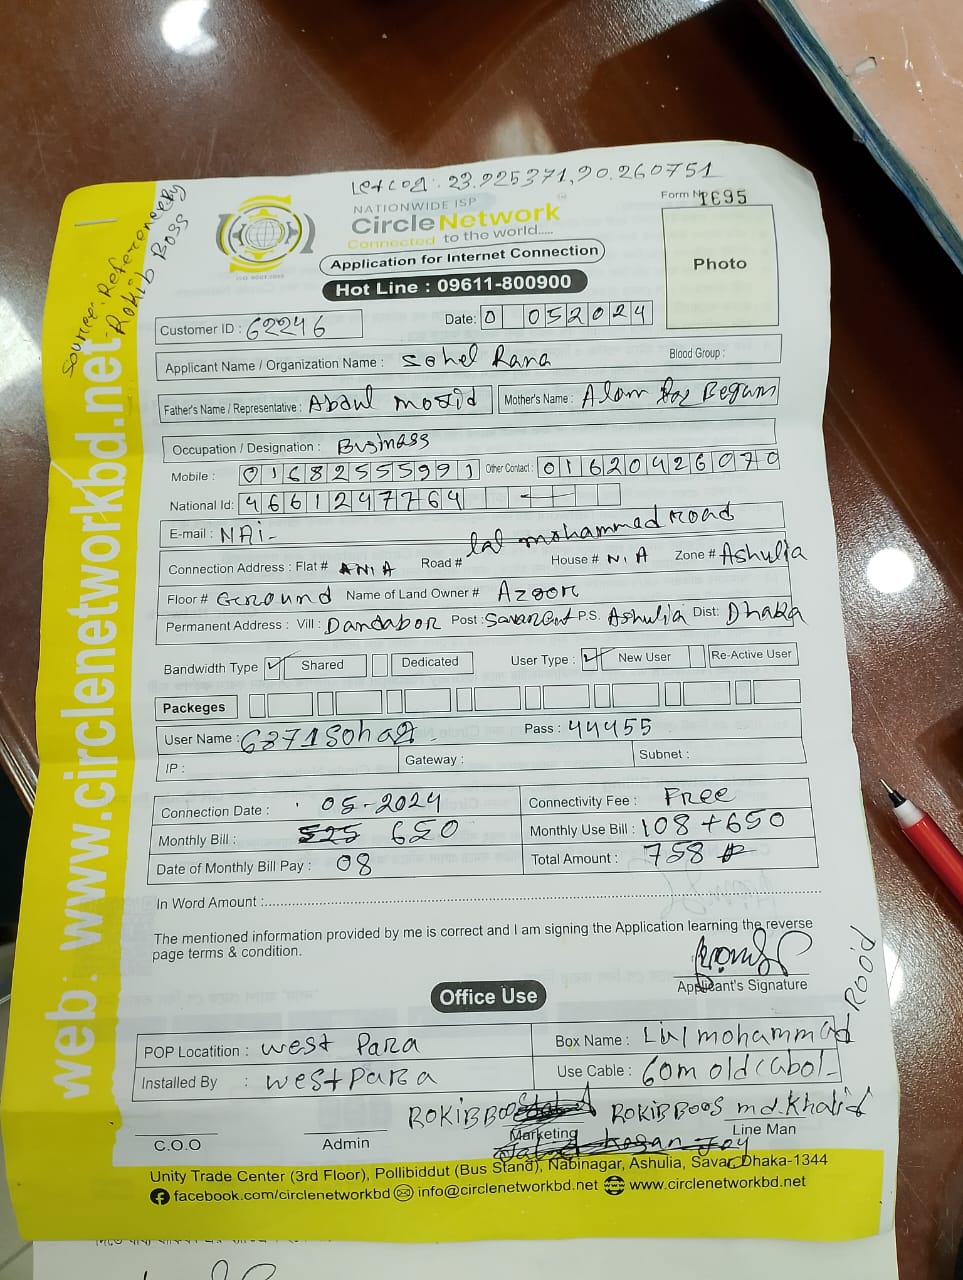 Let Log: 23.925371, 90.260751
Source: Reference By
Rokib Boss
NATIONWIDE ISP
Circle Network
Connected to the world.....
Form No 1695
Photo
Application for Internet Connection
Hot Line : 09611-800900
Customer ID : 62246
Date: 0 052024
Applicant Name / Organization Name : Sohel Rana Blood Group :
Father's Name / Representative : Abdul Mosid Mother's Name : Alam Begum
Occupation / Designation : Business
Mobile : 01682555991 Other Contact : 01620426070
National Id: 4661247764
E-mail : NAi-
Connection Address : Flat # N/A Road # lal mohammed Road House # N.A Zone # Ashulia
Floor # Ground Name of Land Owner #
Permanent Address : Vill : Dandabor Post : P.S. Ashulia Dist: Dhaka
Bandwidth Type ✓ Shared Dedicated User Type : ✓ New User Re-Active User
Packeges
User Name : Pass : 44455
IP : Gateway : Subnet :
Connection Date : 05-2024 Connectivity Fee : Free
Monthly Bill : 525 650 Monthly Use Bill : 108+650
Date of Monthly Bill Pay : 08 Total Amount : 758
In Word Amount :
The mentioned information provided by me is correct and I am signing the Application learning the reverse
page terms & condition.
Applicant's Signature
Office Use
POP Locatition : West Para Box Name : Lal mohammad Rood
Installed By : west para Use Cable : 60m old Cabol
ROKIB BOOS ROKIB BOOS md. Khalid
C.O.O Admin Marketing Line Man
Unity Trade Center (3rd Floor), Pollibiddut (Bus Stand), Nabinagar, Ashulia, Savar, Dhaka-1344
facebook.com/circlenetworkbd info@circlenetworkbd.net www.circlenetworkbd.net
web : www.circlenetworkbd.net